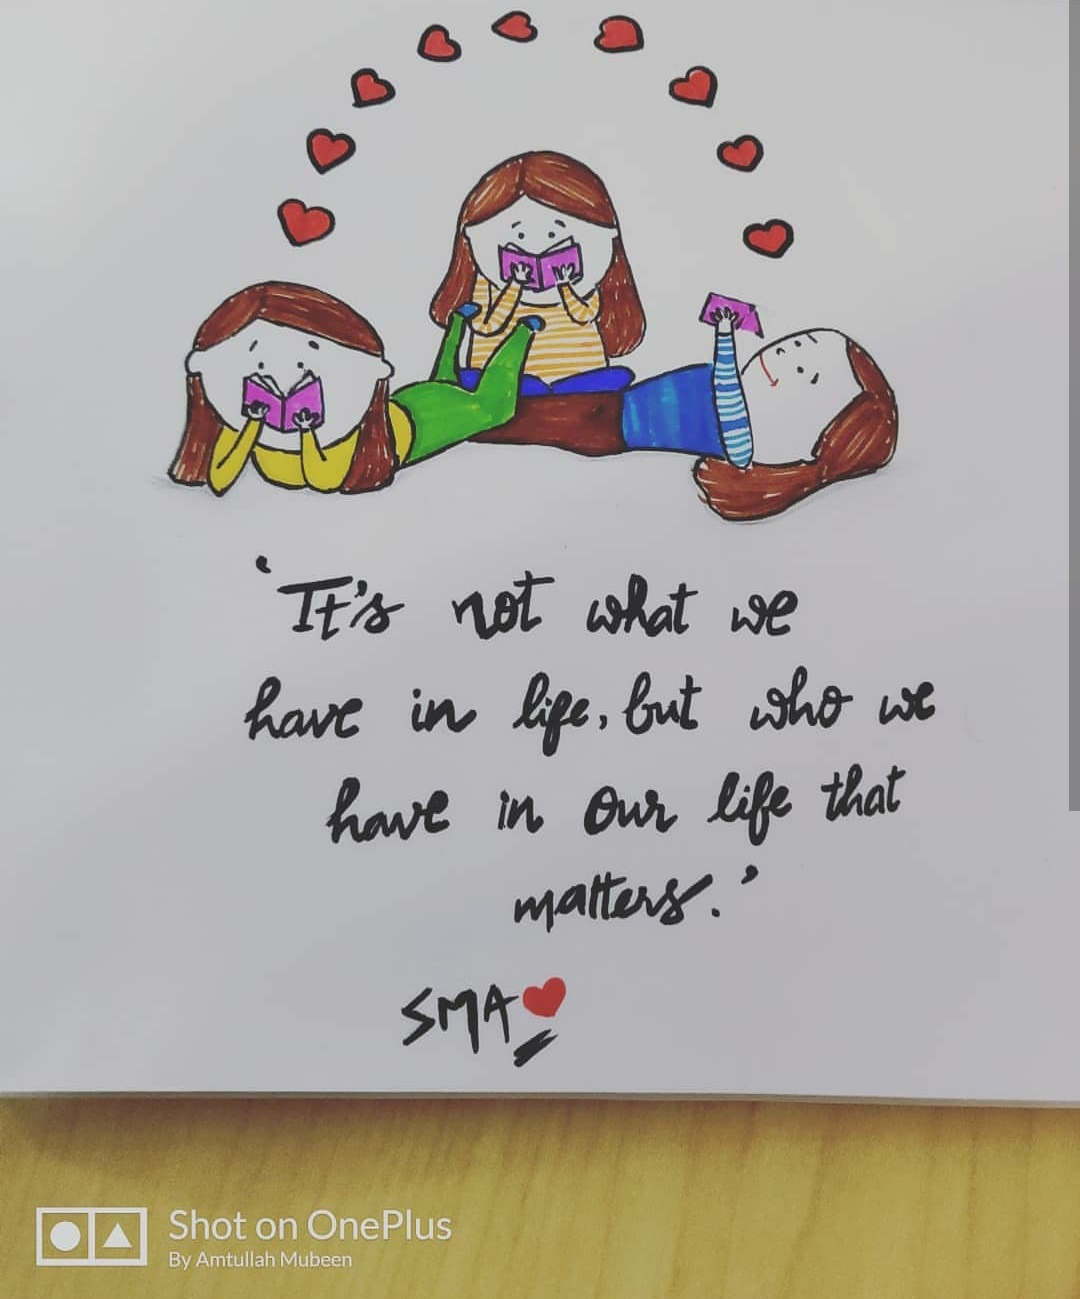 'It's not what we
have in life, but who we
have in our life that
matters.'
SMA
Shot on OnePlus
By Amtullah Mubeen